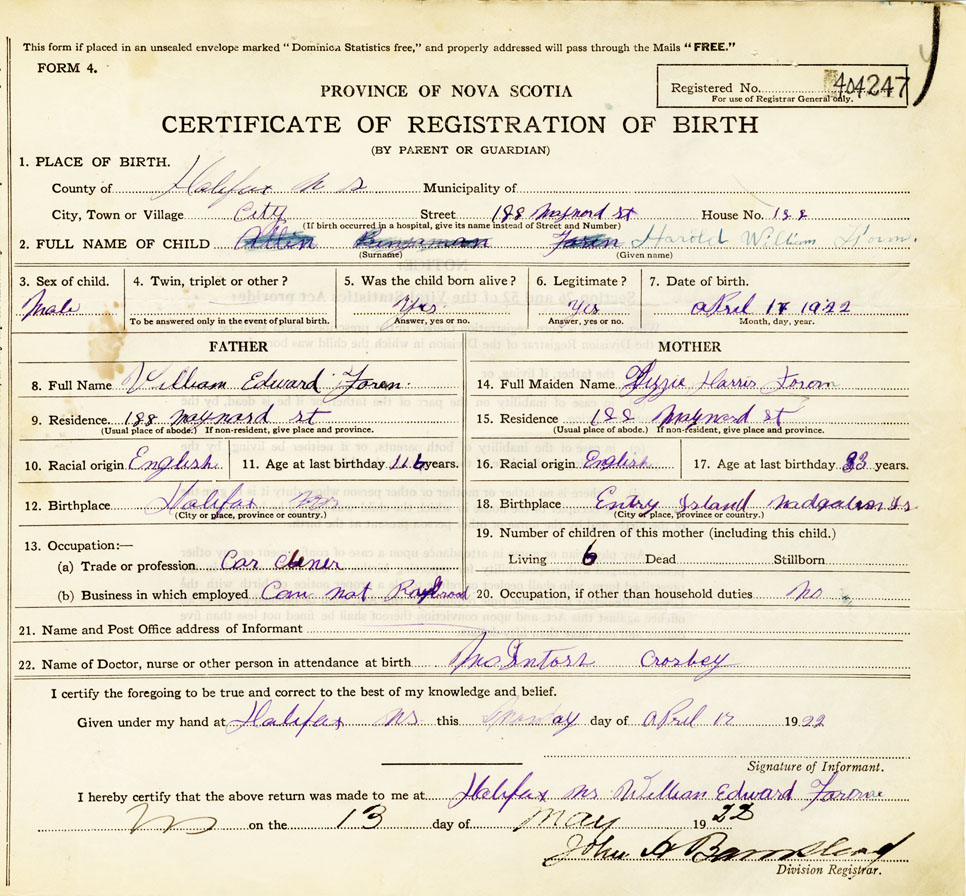 This form if placed in an unsealed envelope marked "Dominica Statistics free," and properly addressed will pass through the Mails "FREE."
FORM 4.
Registered No. 404247
For use of Registrar General only.
PROVINCE OF NOVA SCOTIA
CERTIFICATE OF REGISTRATION OF BIRTH
(BY PARENT OR GUARDIAN)
1. PLACE OF BIRTH.
County of Halifax N S Municipality of
City, Town or Village City Street 188 Maynord St House No. 188
(If birth occurred in a hospital, give its name instead of Street and Number)
2. FULL NAME OF CHILD Foren Harold William
(Surname) (Given name)
3. Sex of child. 4. Twin, triplet or other? 5. Was the child born alive? 6. Legitimate? 7. Date of birth.
Male Yes Yes April 17 1922
To be answered only in the event of plural birth. Answer, yes or no. Answer, yes or no. Month, day, year.
FATHER MOTHER
8. Full Name William Edward Foren 14. Full Maiden Name Lizzie Harris
9. Residence 188 Maynord St 15. Residence 188 Maynord St
(Usual place of abode.) If non-resident, give place and province. (Usual place of abode.) If non-resident, give place and province.
10. Racial origin English 11. Age at last birthday years. 16. Racial origin English 17. Age at last birthday 33 years.
12. Birthplace Halifax NS 18. Birthplace Entry Island
(City or place, province or country.) (City or place, province or country.)
19. Number of children of this mother (including this child.)
13. Occupation:—
Living 6 Dead Stillborn
(a) Trade or profession Car
(b) Business in which employed Can nat 20. Occupation, if other than household duties No
21. Name and Post Office address of Informant
22. Name of Doctor, nurse or other person in attendance at birth McIntosh Crosbey
I certify the foregoing to be true and correct to the best of my knowledge and belief.
Given under my hand at Halifax NS this day of April 17 1922
Signature of Informant.
I hereby certify that the above return was made to me at Halifax NS William Edward
on the 13 day of May 1922
John A
Division Registrar.